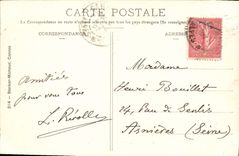 CARTE POSTALE
La Correspondance au recto n'est pas acceptée par tous les pays étrangers (Se renseigner à la Poste)
CORRESPONDANCE
ADRESSE
Amitiés
pour vous tous
L. Révolle
Madame
Henri Bouillet
24, Rue de Senlis
Asnières (Seine)